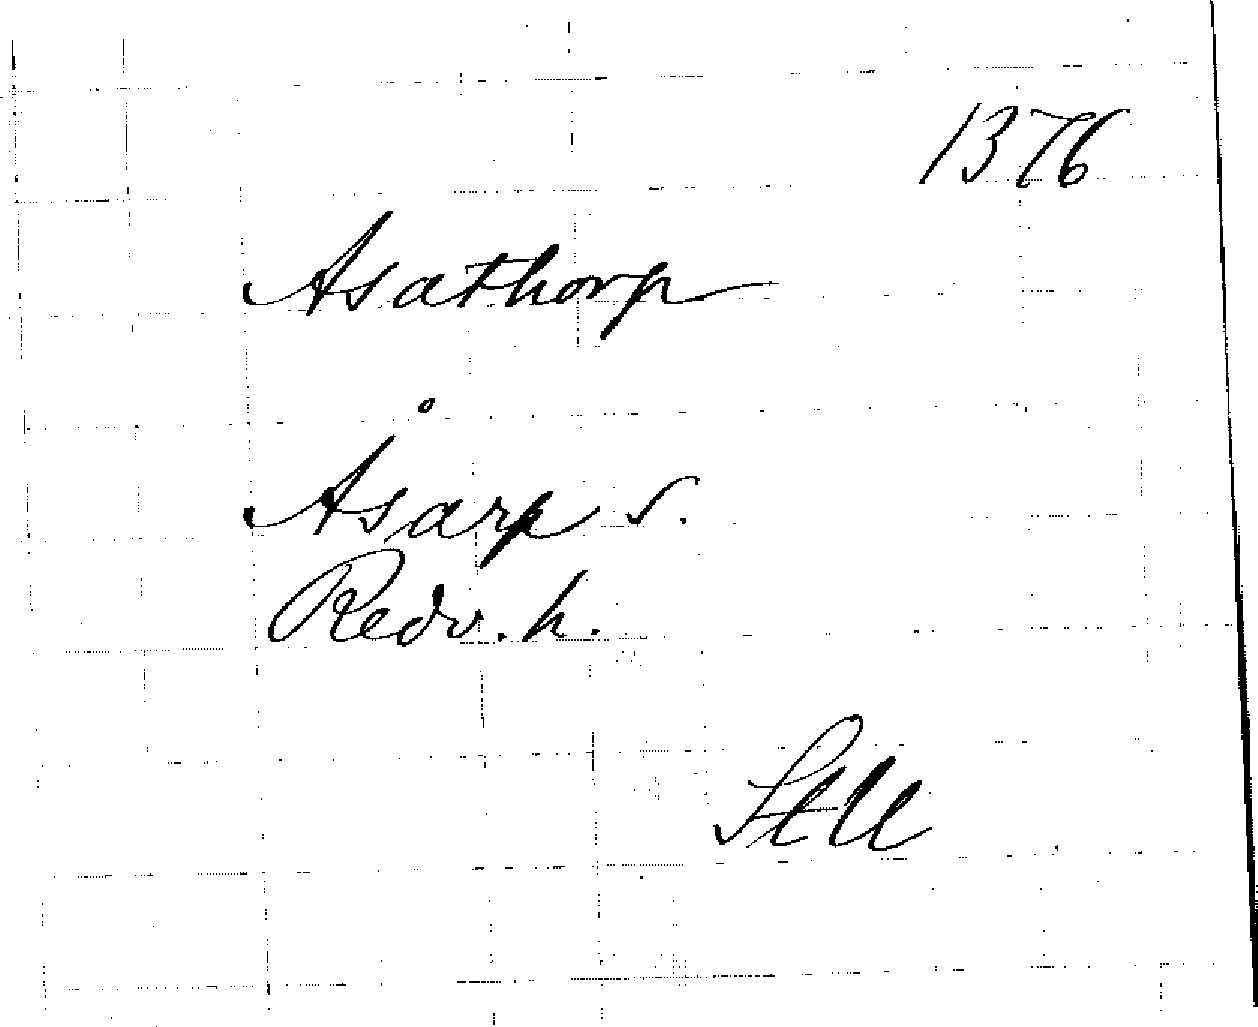 1376
Asathorp
Åsarp s.
Redv. h.
StU